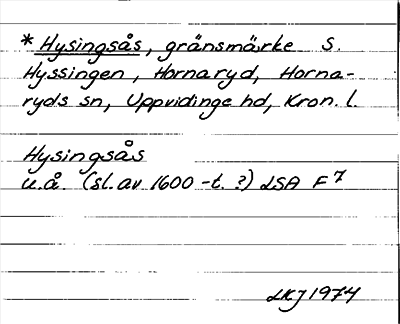 * Hysingsås, gränsmärke S.
Hyssingen, Hornaryd, Horna-
ryds sn, Uppvidinge hd, Kron. l.
Hysingsås
u.å. (sl. av 1600-t. ?) LSA F 7
LKJ 1974